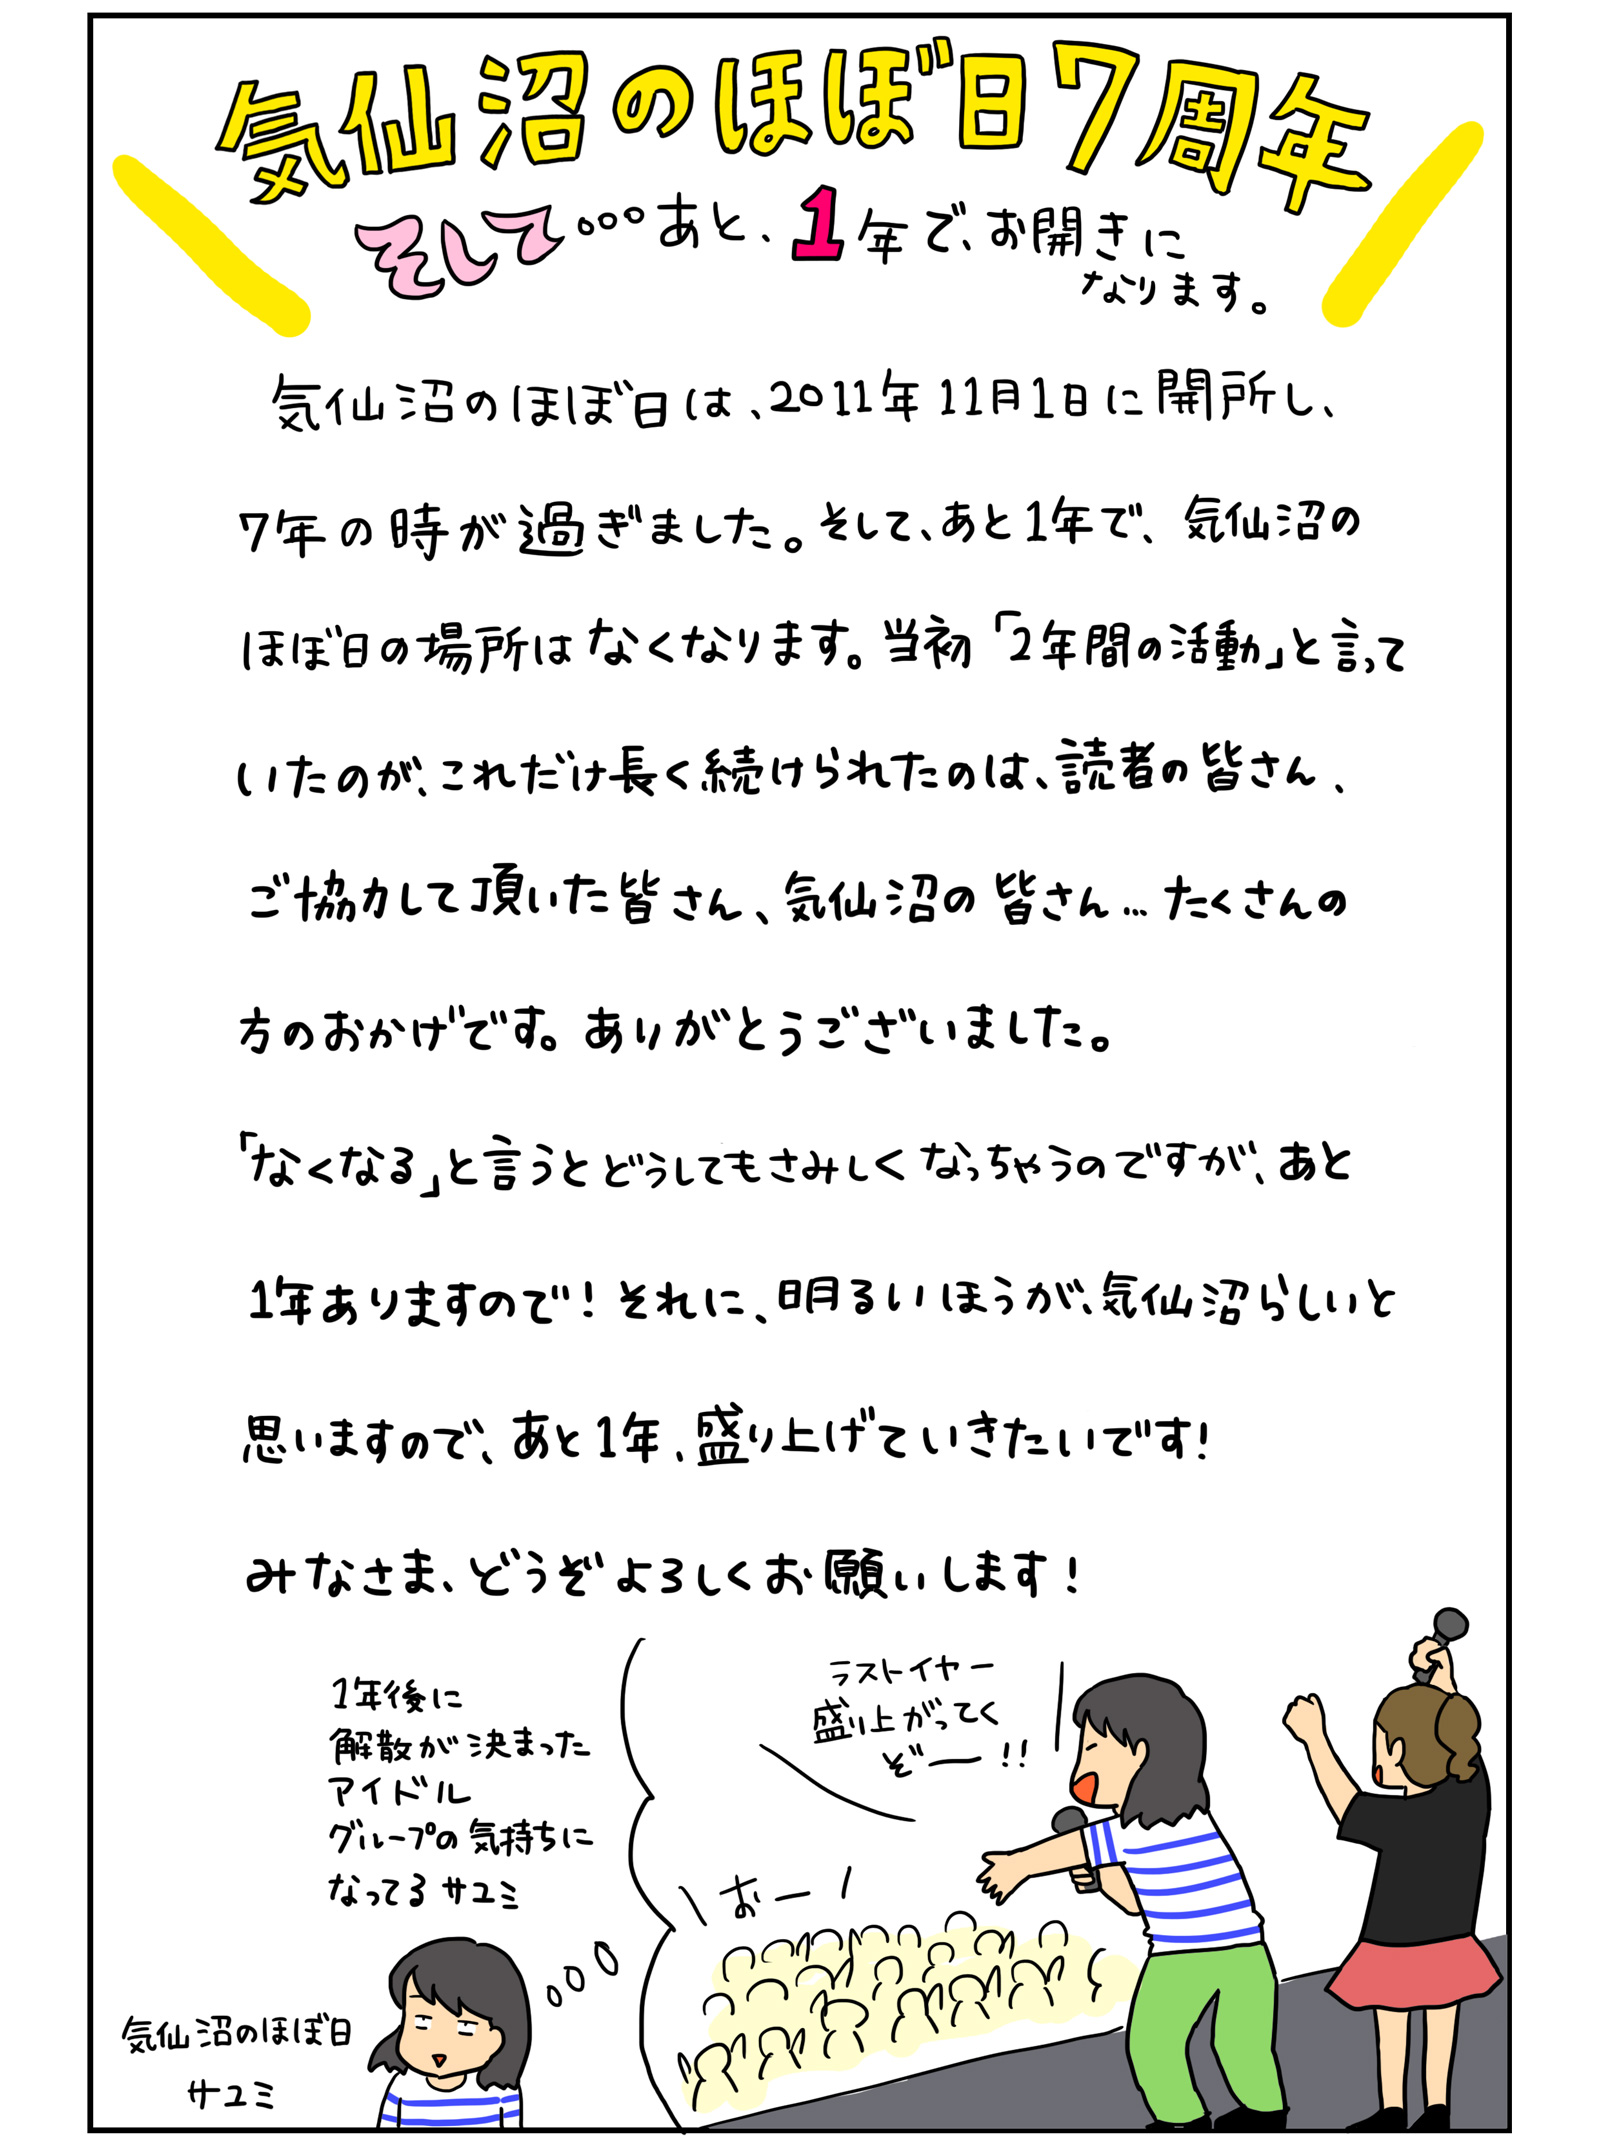 気仙沼のほぼ日7周年
そして…あと、1年で、お開きに
なります。
気仙沼のほぼ日は、2011年11月1日に開所し、
7年の時が過ぎました。そして、あと1年で、気仙沼の
ほぼ日の場所はなくなります。当初「2年間の活動」と言って
いたのが、これだけ長く続けられたのは、読者の皆さん、
ご協力して頂いた皆さん、気仙沼の皆さん…たくさんの
方のおかげです。ありがとうございました。
「なくなる」と言うとどうしてもさみしくなっちゃうのですが、あと
1年ありますので！それに、明るいほうが、気仙沼らしいと
思いますので、あと1年、盛り上げていきたいです！
みなさま、どうぞよろしくお願いします！
1年後に
解散が決まった
アイドル
グループの気持ちに
なってるサユミ
ラストイヤー
盛り上がってく
ぞー!!
おー
気仙沼のほぼ日
サユミ